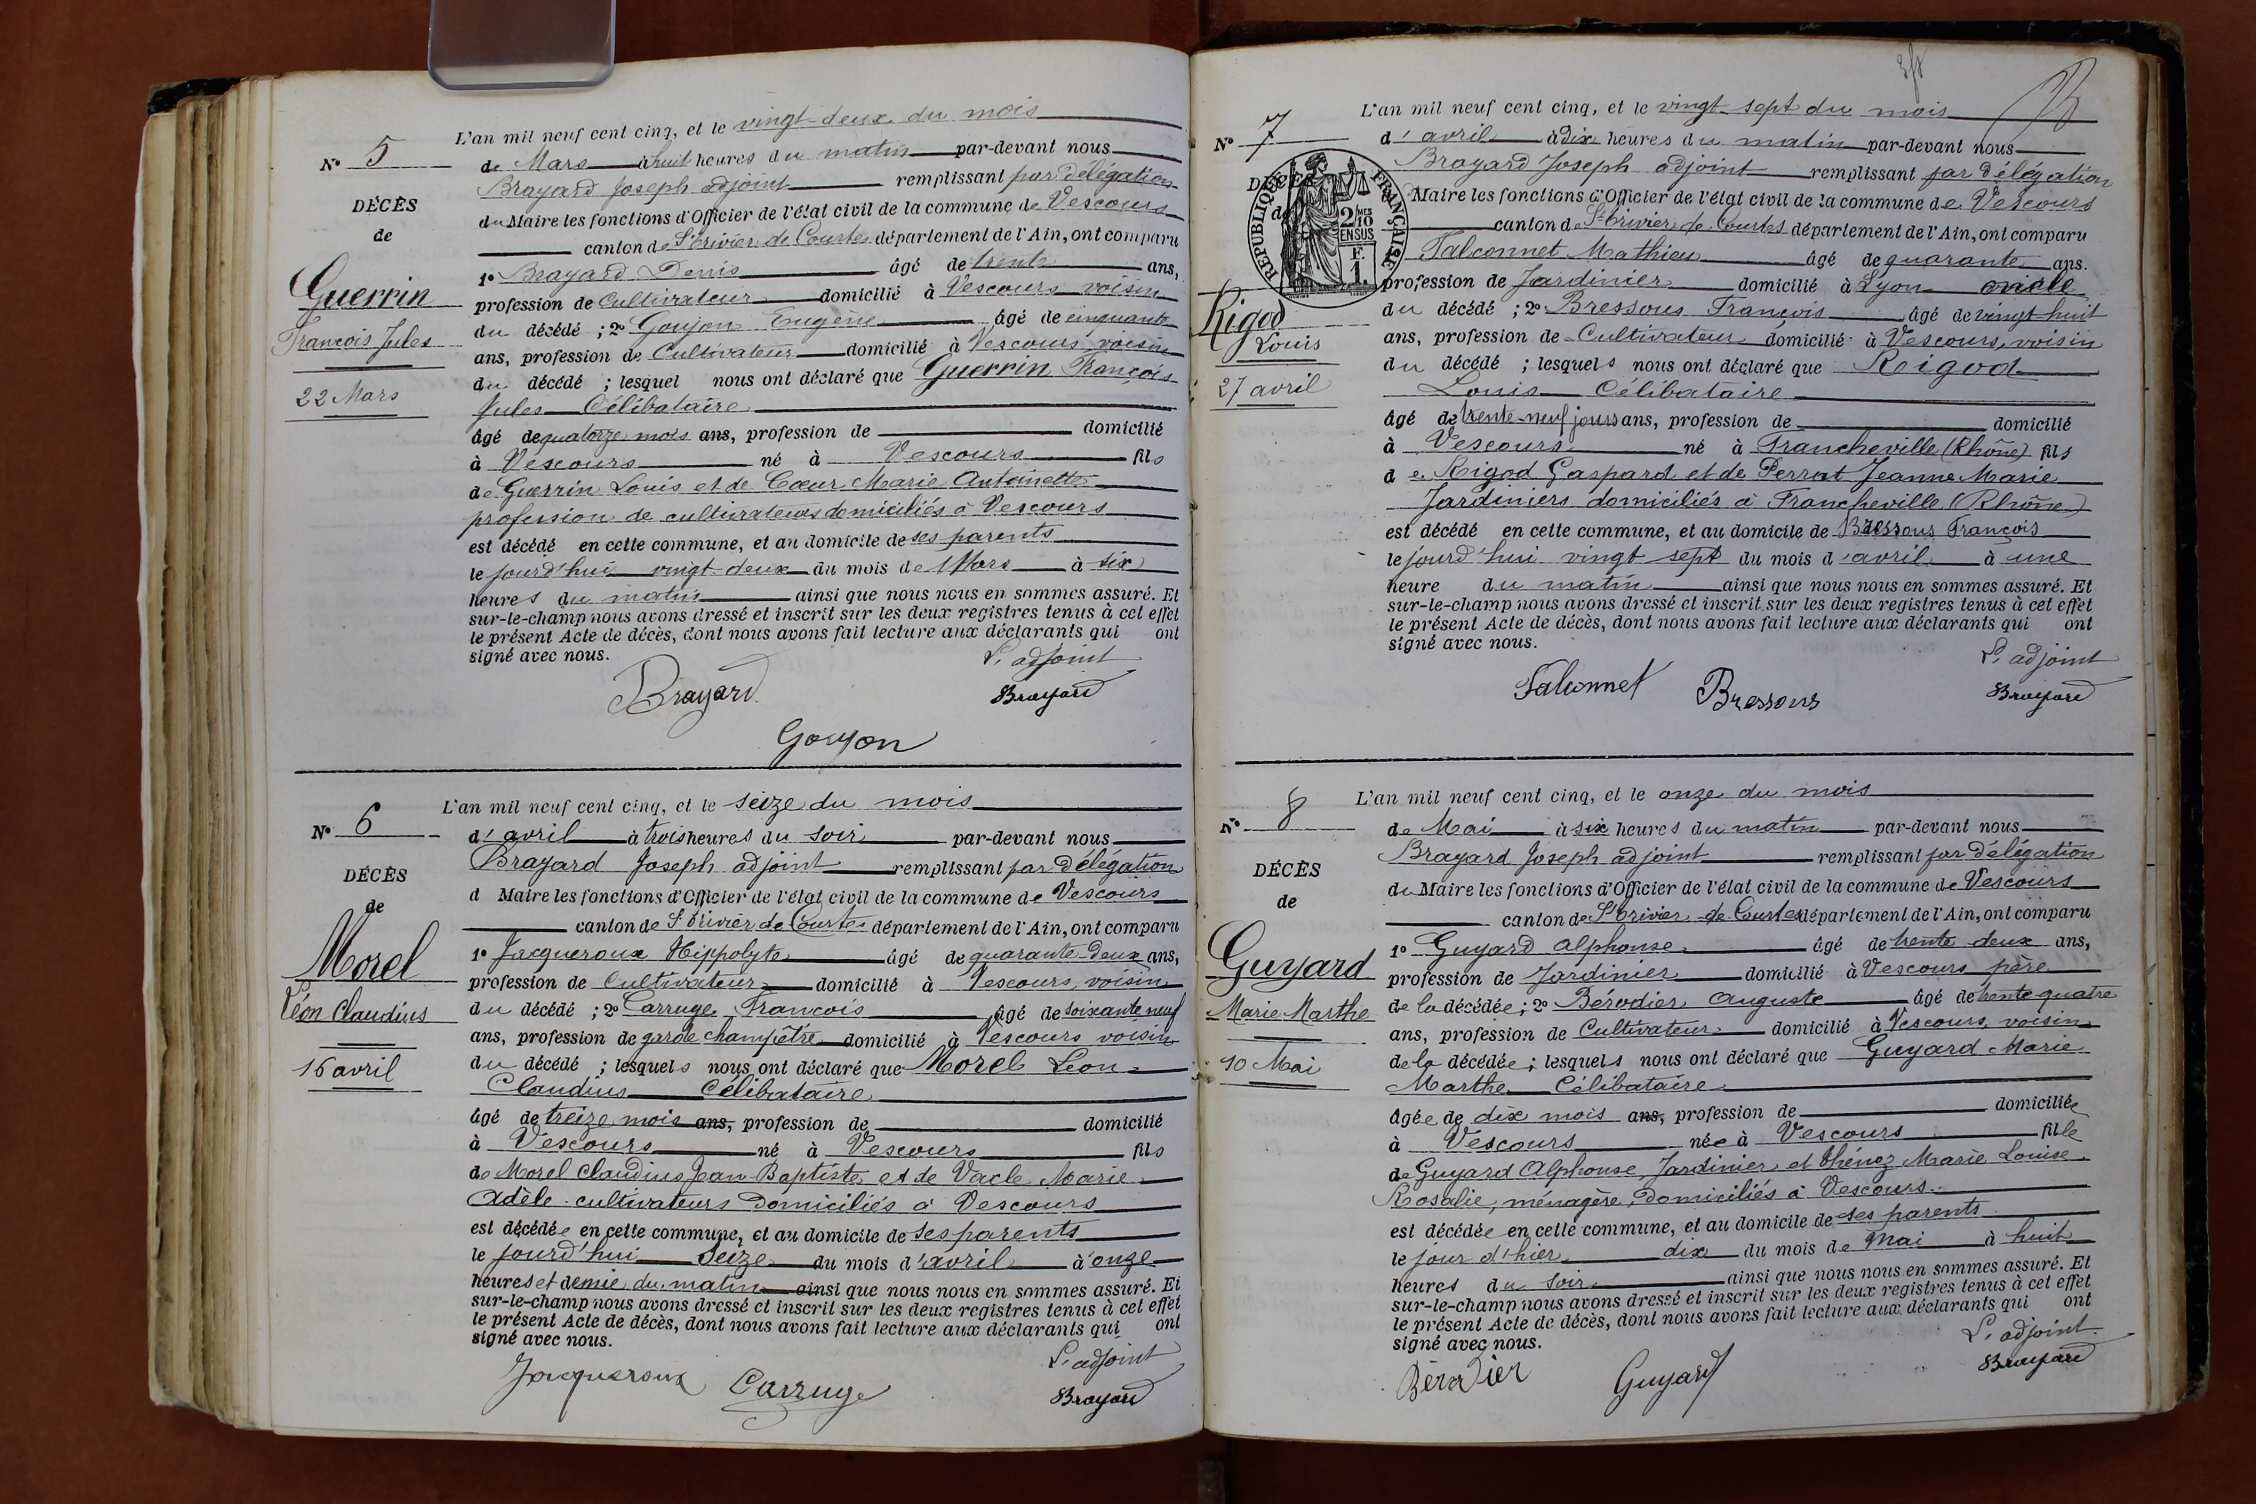 L'an mil neuf cent cinq, et le vingt-deux du mois
N° 5
de Mars à huit heures du matin par-devant nous
Brayard Joseph adjoint remplissant par délégation
DÉCÈS
du Maire les fonctions d'Officier de l'état civil de la commune de Vescours
de
canton de St Trivier de Courtes département de l'Ain, ont comparu
1° Brayard Denis âgé de trente ans,
Guerrin
profession de Cultivateur domicilié à Vescours voisin
du décédé ; 2° Goujon Eugène âgé de cinquante
François Jules
ans, profession de Cultivateur domicilié à Vescours voisin
du décédé ; lesquel nous ont déclaré que Guerrin François
22 Mars
Jules Célibataire
âgé de quatorze mois ans, profession de domicilié
à Vescours né à Vescours fils
de Guerrin Louis et de Cœur Marie Antoinette
profession de cultivateurs domiciliés à Vescours
est décédé en cette commune, et au domicile de ses parents
le jourd'hui vingt deux du mois de Mars à six
heures du matin ainsi que nous nous en sommes assuré. Et
sur-le-champ nous avons dressé et inscrit sur les deux registres tenus à cet effet
le présent Acte de décès, dont nous avons fait lecture aux déclarants qui ont
signé avec nous.
L'adjoint
Brayard
Brayard
Goujon
L'an mil neuf cent cinq, et le seize du mois
N° 6
d'avril à trois heures du soir par-devant nous
Brayard Joseph adjoint remplissant par délégation
DÉCÈS
d Maire les fonctions d'Officier de l'état civil de la commune de Vescours
de
canton de St Trivier de Courtes département de l'Ain, ont comparu
1° Jacqueroux Hippolyte âgé de quarante deux ans,
Morel
profession de Cultivateur domicilié à Vescours, voisin
du décédé ; 2° Carruge François âgé de soixante neuf
Léon Claudius
ans, profession de garde champêtre domicilié à Vescours voisin
du décédé ; lesquels nous ont déclaré que Morel Léon
16 avril
Claudius Célibataire
âgé de treize mois ans, profession de domicilié
à Vescours né à Vescours fils
de Morel Claudius Jean Baptiste et de Vacle Marie
Adèle cultivateurs domiciliés à Vescours
est décédée en cette commune, et au domicile de ses parents
le jourd'hui Seize du mois d'avril à onze
heures et demie du matin ainsi que nous nous en sommes assuré. Et
sur-le-champ nous avons dressé et inscrit sur les deux registres tenus à cet effet
le présent Acte de décès, dont nous avons fait lecture aux déclarants qui ont
signé avec nous.
L'adjoint
Jacqueroux Carruge Brayard
L'an mil neuf cent cinq, et le vingt sept du mois
N° 7
d'avril à dix heures du matin par-devant nous
Brayard Joseph adjoint remplissant par délégation
RÉPUBLIQUE FRANÇAISE
2 MES 10 EN SUS
F. 1.
Maire les fonctions d'Officier de l'état civil de la commune de Vescours
canton de St Trivier de Courtes département de l'Ain, ont comparu
Falconnet Mathieu âgé de quarante ans.
profession de Jardinier domicilié à Lyon oncle
Rigod
du décédé ; 2° Bressous François âgé de vingt huit
Louis
ans, profession de Cultivateur domicilié à Vescours, voisin
du décédé ; lesquels nous ont déclaré que Reigod
27 avril
Louis Célibataire
âgé de trente-neuf jours ans, profession de domicilié
à Vescours né à Francheville (Rhône) fils
de Rigod Gaspard et de Perrat Jeanne Marie
Jardiniers domiciliés à Francheville (Rhône)
est décédé en cette commune, et au domicile de Bressous François
le jourd'hui vingt sept du mois d'avril à une
heure du matin ainsi que nous nous en sommes assuré. Et
sur-le-champ nous avons dressé et inscrit sur les deux registres tenus à cet effet
le présent Acte de décès, dont nous avons fait lecture aux déclarants qui ont
signé avec nous.
L'adjoint
Falconnet Bressous Brayard
L'an mil neuf cent cinq, et le onze du mois
N° 8
de Mai à six heures du matin par-devant nous
Brayard Joseph adjoint remplissant par délégation
DÉCÈS
du Maire les fonctions d'Officier de l'état civil de la commune de Vescours
de
canton de St Trivier de Courtes département de l'Ain, ont comparu
1° Guyard Alphonse âgé de trente deux ans,
Guyard
profession de Jardinier domicilié à Vescours père
Marie Marthe
de la décédée ; 2° Bérodier Auguste âgé de trente quatre
ans, profession de Cultivateur domicilié à Vescours, voisin
10 Mai
de la décédée ; lesquels nous ont déclaré que Guyard Marie
Marthe Célibataire
âgée de dix mois ans, profession de domiciliée
à Vescours née à Vescours fille
de Guyard Alphonse Jardinier et Thénoz Marie Louise
Rosalie, ménagère, domiciliés à Vescours
est décédée en cette commune, et au domicile de ses parents
le jour d'hier dix du mois de Mai à huit
heures du soir ainsi que nous nous en sommes assuré. Et
sur-le-champ nous avons dressé et inscrit sur les deux registres tenus à cet effet
le présent Acte de décès, dont nous avons fait lecture aux déclarants qui ont
signé avec nous.
L'adjoint
Bérodier Guyard Brayard